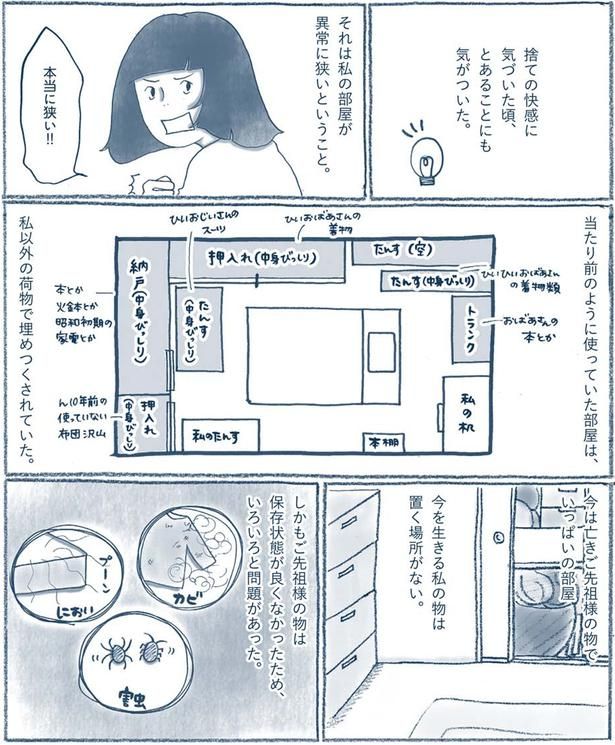 捨ての快感に
気づいた頃、
とあることにも
気がついた。
それは私の部屋が
異常に狭いということ。
本当に狭い!!
当たり前のように使っていた部屋は、
ひいおじいさんの
スーツ
ひいおばあさんの
着物
納戸(中身びっしり)
押入れ(中身びっしり)
たんす(空)
たんす(中身びっしり)
ひいひいおばあさん
の着物類
たんす
(中身びっしり)
トランク
おばあさんの
本とか
本とか
火鉢とか
昭和初期の
家電とか
ん10年前の
使っていない
布団沢山
押入れ
(中身びっしり)
私のたんす
本棚
私の机
私以外の荷物で埋めつくされていた。
今は亡きご先祖様の物で
いっぱいの部屋
今を生きる私の物は
置く場所がない。
しかもご先祖様の物は
保存状態が良くなかったため、
いろいろと問題があった。
カビ
プーン
におい
害虫